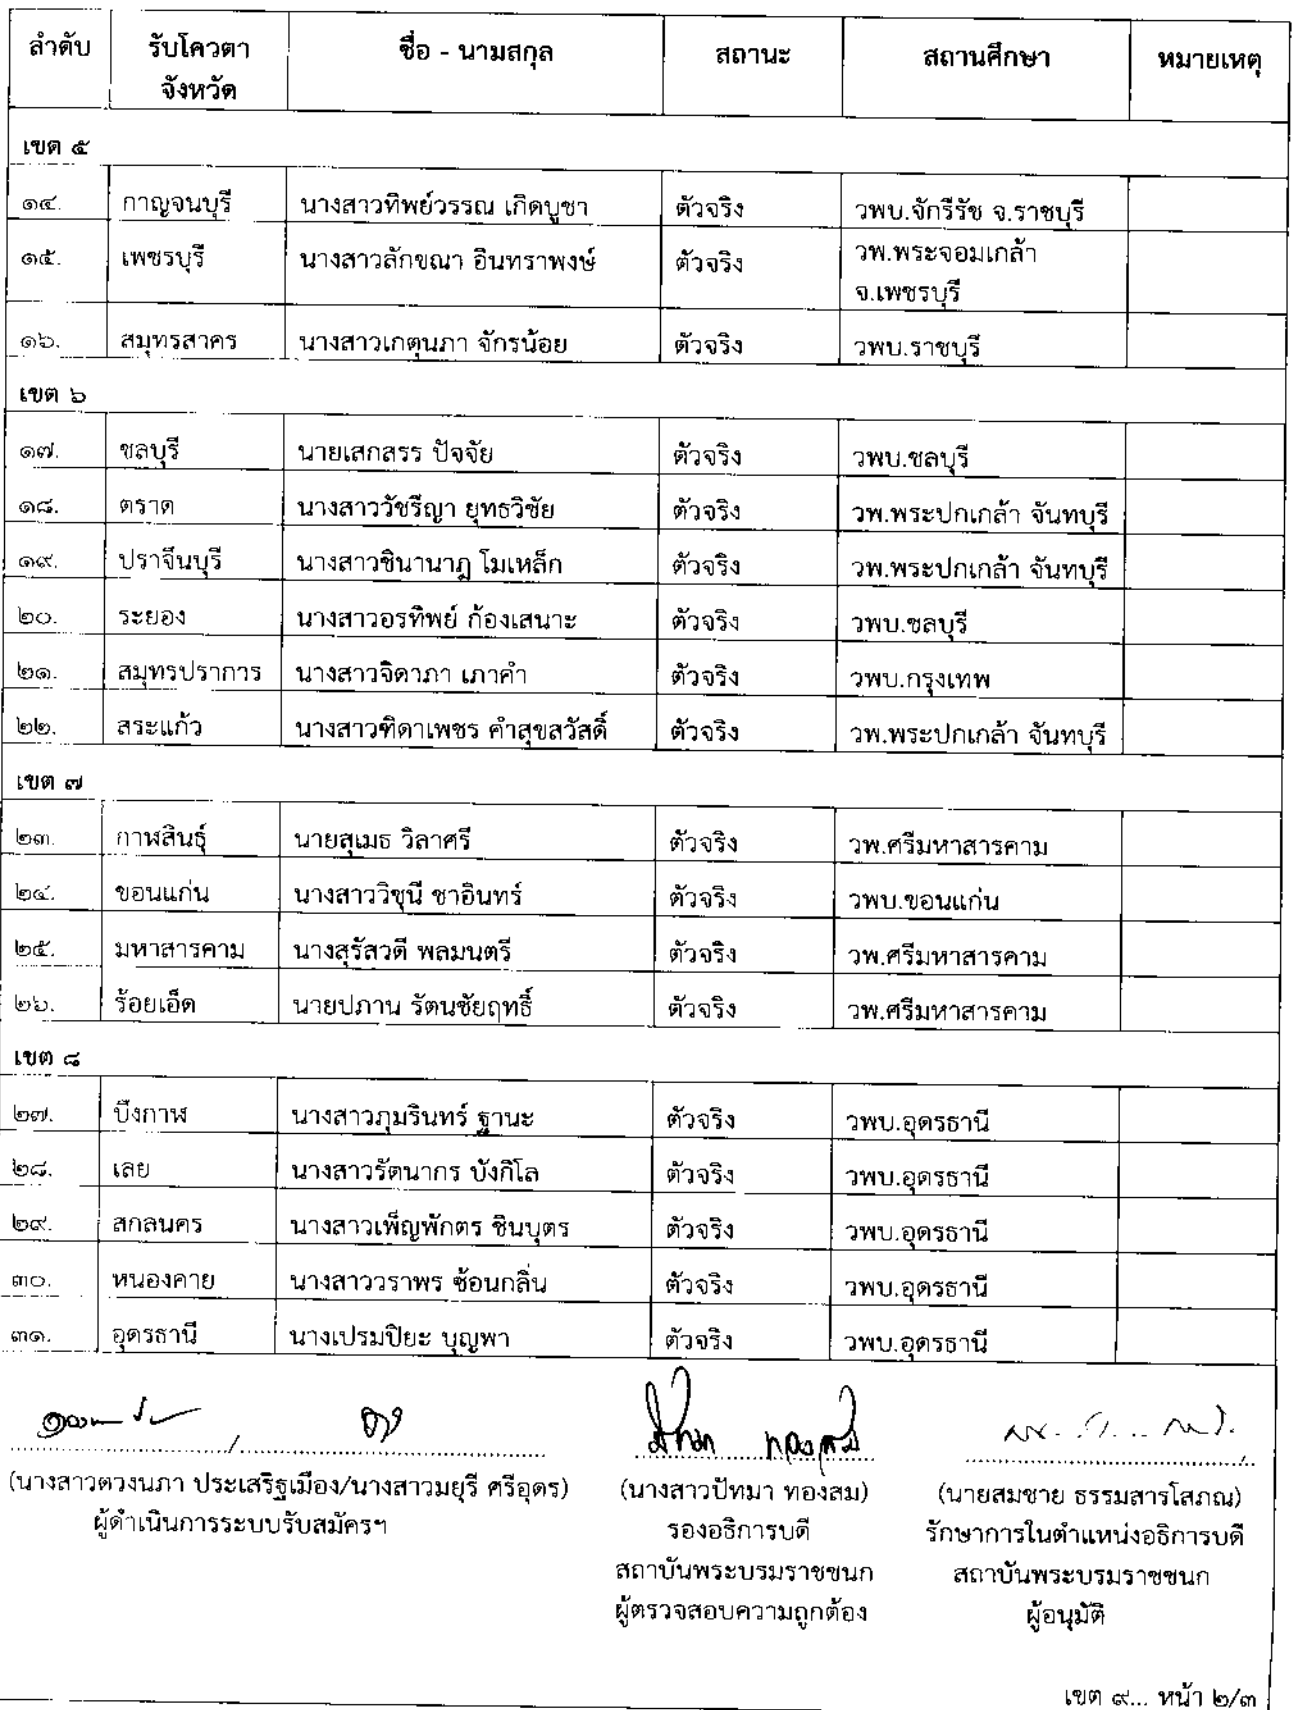 ลำดับ รับโควตา ชื่อ - นามสกุล สถานะ สถานศึกษา หมายเหตุ
จังหวัด
เขต ๕
๑๔. กาญจนบุรี นางสาวทิพย์วรรณ เกิดบูชา ตัวจริง วพบ.จักรีรัช จ.ราชบุรี
๑๕. เพชรบุรี นางสาวลักขณา อินทราพงษ์ ตัวจริง วพ.พระจอมเกล้า
จ.เพชรบุรี
๑๖. สมุทรสาคร นางสาวเกตุนภา จักรน้อย ตัวจริง วพบ.ราชบุรี
เขต ๖
๑๗. ชลบุรี นายเสกสรร ปัจจัย ตัวจริง วพบ.ชลบุรี
๑๘. ตราด นางสาววัชรีญา ยุทธวิชัย ตัวจริง วพ.พระปกเกล้า จันทบุรี
๑๙. ปราจีนบุรี นางสาวชินานาฏ โมเหล็ก ตัวจริง วพ.พระปกเกล้า จันทบุรี
๒๐. ระยอง นางสาวอรทิพย์ ก้องเสนาะ ตัวจริง วพบ.ชลบุรี
๒๑. สมุทรปราการ นางสาวจิดาภา เภาคำ ตัวจริง วพบ.กรุงเทพ
๒๒. สระแก้ว นางสาวฑิดาเพชร คำสุขสวัสดิ์ ตัวจริง วพ.พระปกเกล้า จันทบุรี
เขต ๗
๒๓. กาฬสินธุ์ นายสุเมธ วิลาศรี ตัวจริง วพ.ศรีมหาสารคาม
๒๔. ขอนแก่น นางสาววิชุนี ชาอินทร์ ตัวจริง วพบ.ขอนแก่น
๒๕. มหาสารคาม นางสุรัสวดี พลมนตรี ตัวจริง วพ.ศรีมหาสารคาม
๒๖. ร้อยเอ็ด นายปภาน รัตนชัยฤทธิ์ ตัวจริง วพ.ศรีมหาสารคาม
เขต ๘
๒๗. บึงกาฬ นางสาวภุมรินทร์ ฐานะ ตัวจริง วพบ.อุดรธานี
๒๘. เลย นางสาวรัตนากร บังกิโล ตัวจริง วพบ.อุดรธานี
๒๙. สกลนคร นางสาวเพ็ญพักตร ชินบุตร ตัวจริง วพบ.อุดรธานี
๓๐. หนองคาย นางสาววราพร ซ้อนกลิ่น ตัวจริง วพบ.อุดรธานี
๓๑. อุดรธานี นางเปรมปิยะ บุญพา ตัวจริง วพบ.อุดรธานี
(นางสาวดวงนภา ประเสริฐเมือง/นางสาวมยุรี ศรีอุดร) (นางสาวปัทมา ทองสม) (นายสมชาย ธรรมสารโสภณ)
ผู้ดำเนินการระบบรับสมัครฯ รองอธิการบดี รักษาการในตำแหน่งอธิการบดี
สถาบันพระบรมราชชนก สถาบันพระบรมราชชนก
ผู้ตรวจสอบความถูกต้อง ผู้อนุมัติ
เขต ๙... หน้า ๒/๓